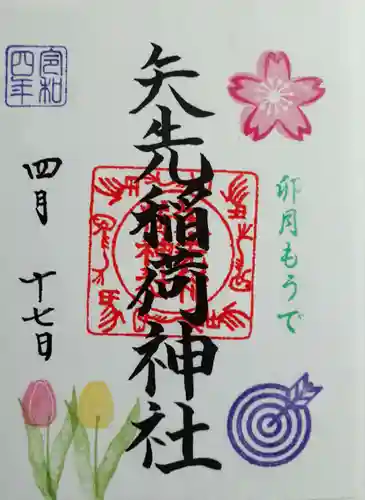 矢先稲荷神社
卯月もうで
令和
四年
四月
十七日